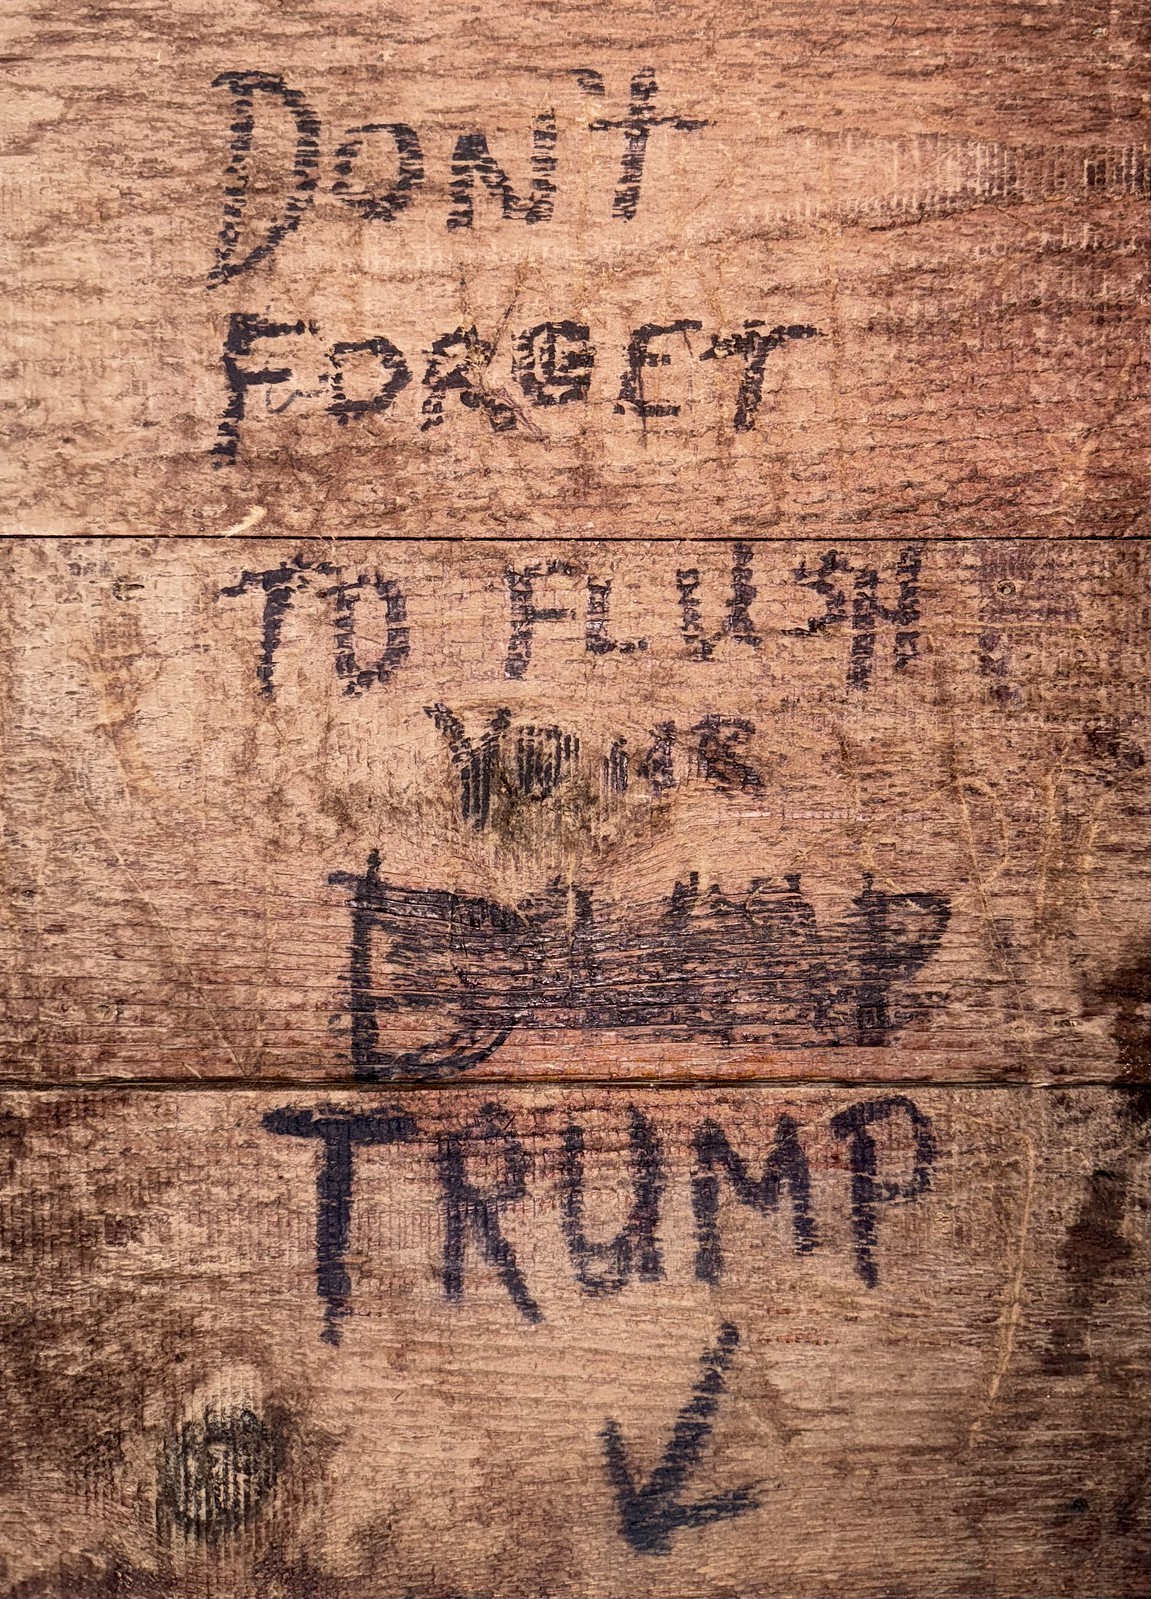 DON'T
FORGET
TO FLUSH
YOUR
DUMP
TRUMP